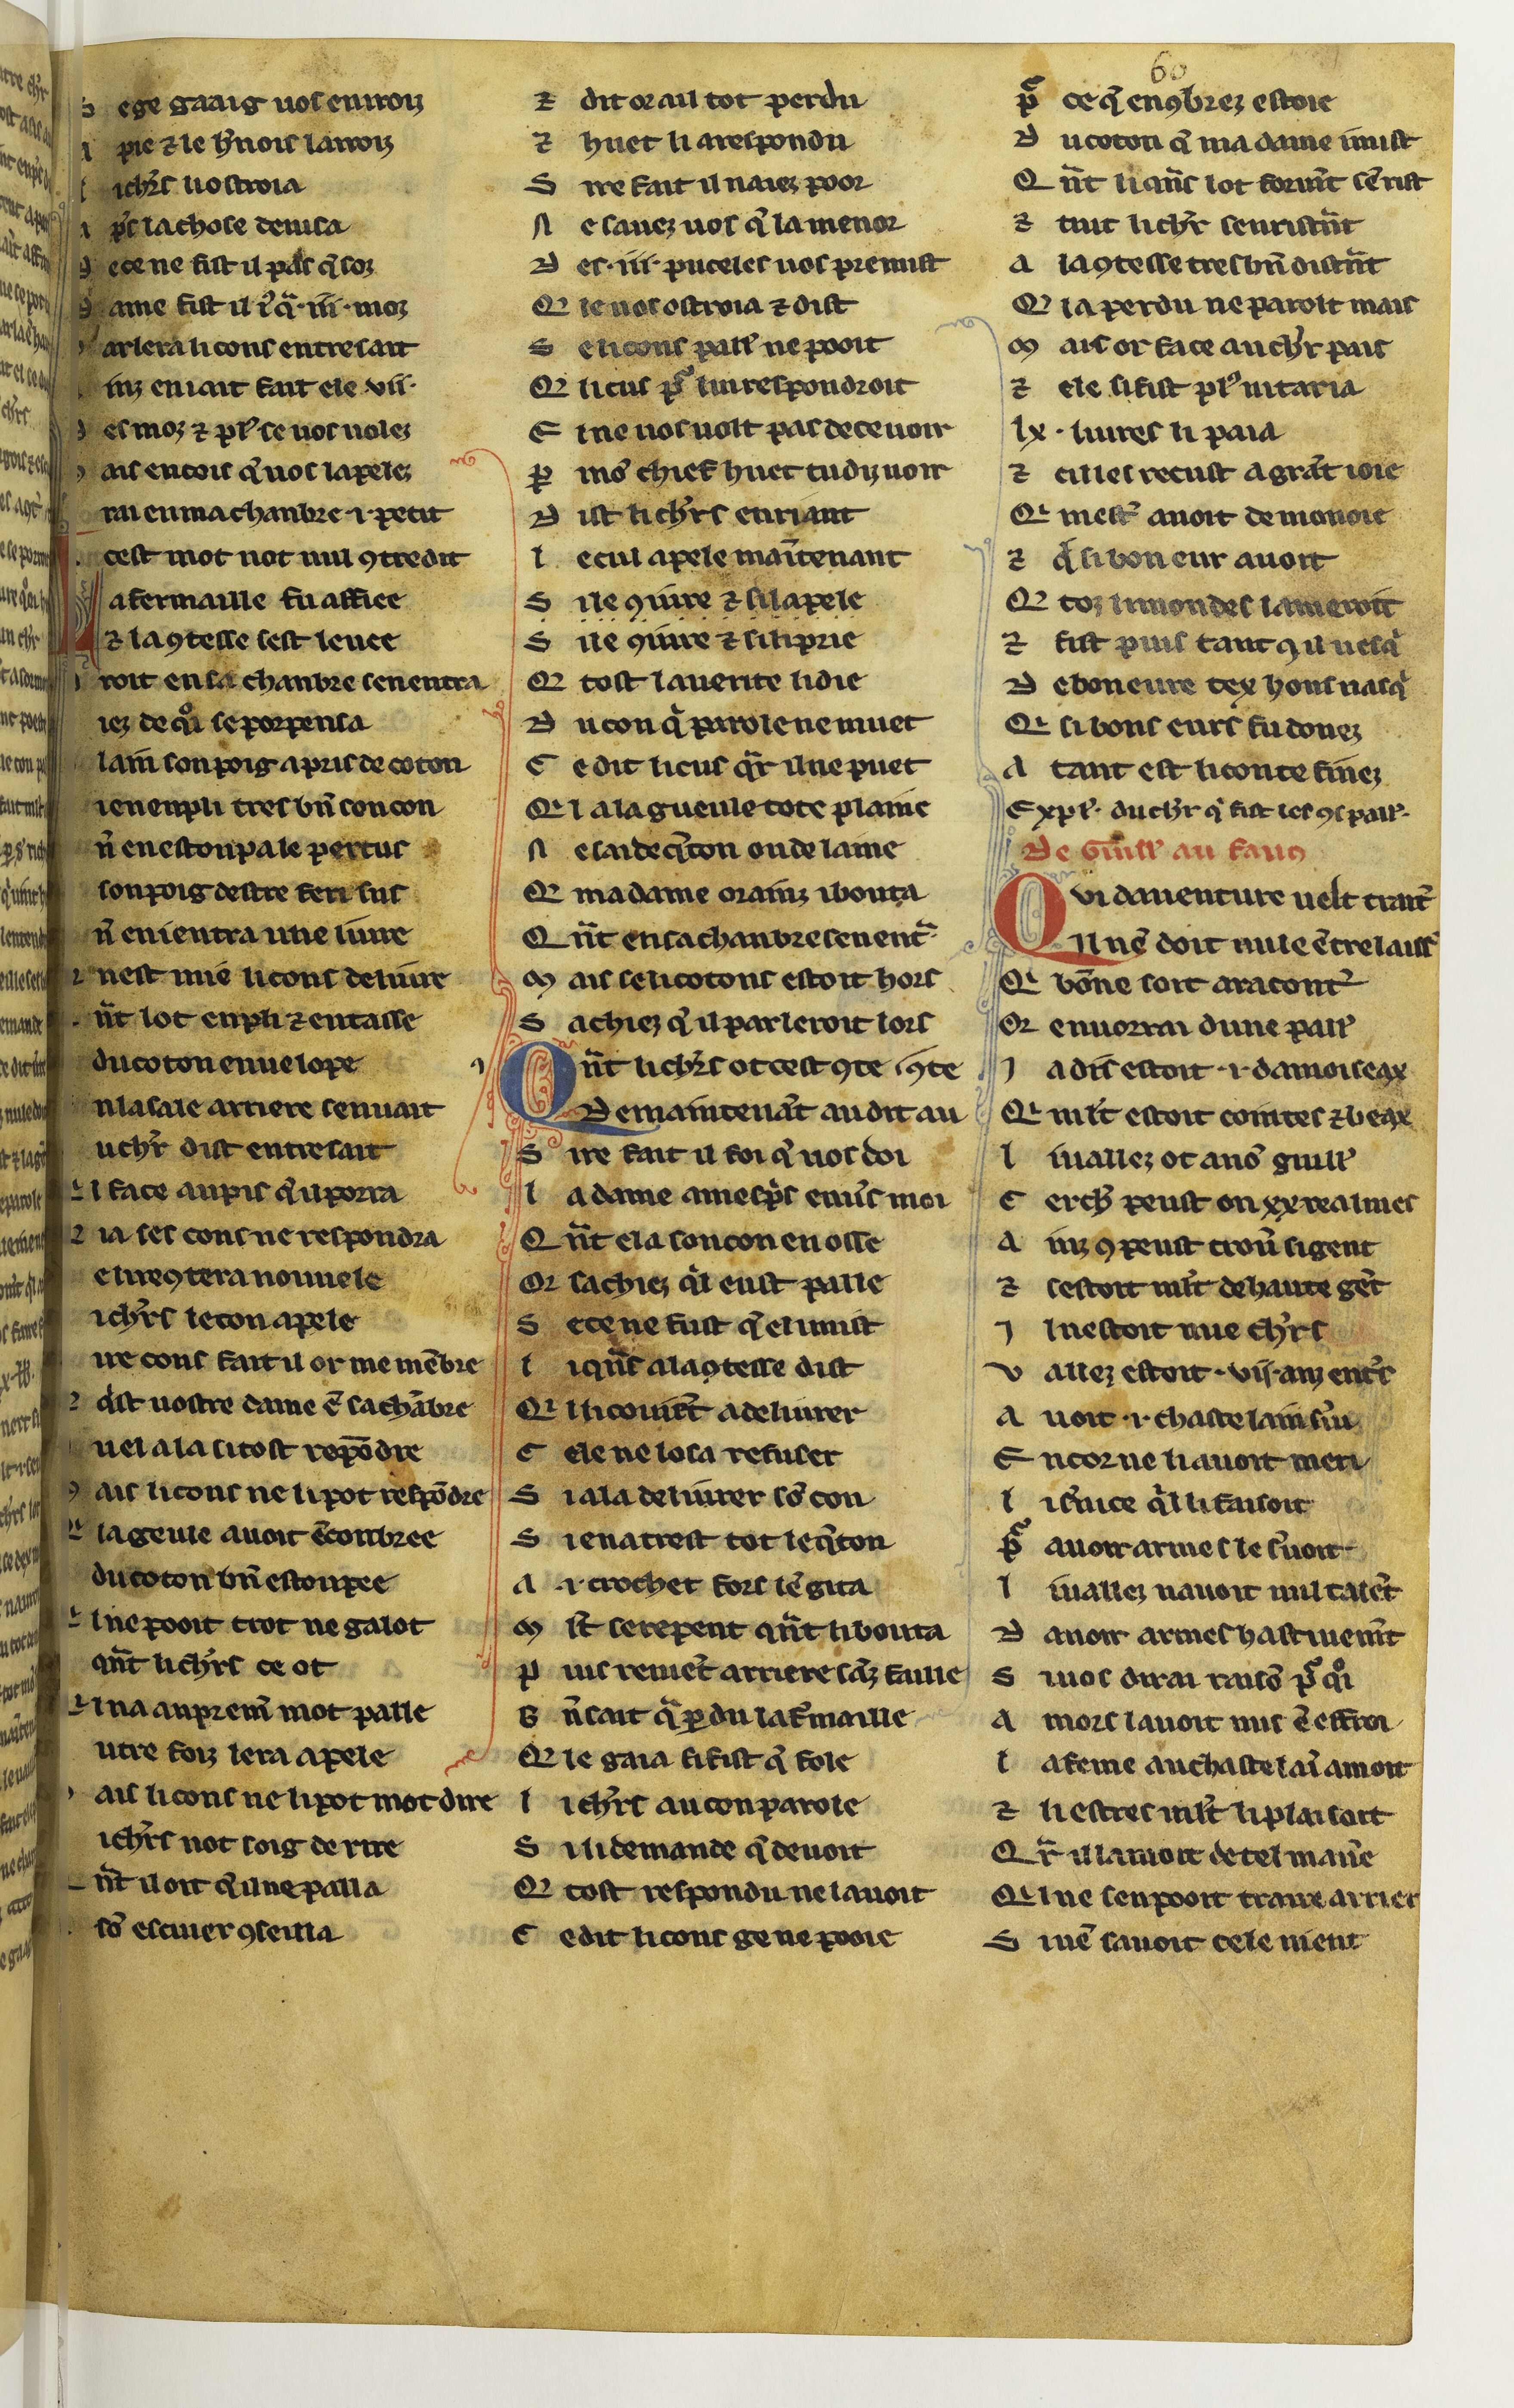 60
S ege gaaig uos en uroiz
pie ⁊ le h'nois lairoiz
l ich'rs li ostroia
A p's la chose deuisa
D ece ne fist il pas q̃ soz
D ame fist il i q̃ .iii. moz
P arlera li cons entresait
inz en i ait fait ele .vii.
D es moz ⁊ pl' se uos uolez
M ais encois q̃ uos lapelez
rai en ma chanbre .i. petit
. cest mot not nul ꝯtredit
L a fermaille fu affiee
⁊ la ꝯtesse sest leuee
roit en sa chanbre sen entra
iez de q̊i se porpensa
lain son poig a pris de coton
ien enpli tres bñ son con
ñ en estoupa le pertus
son poig destre feri sus
ñ en i entra une liure
2 nest mie li cons deliure
ñt lot enpli ⁊ entasse
du coton enuelope
n la sale arriere sen uait
u ch'r dist entresait
Q' l face au pis q̃ u porra
2 ia ses cons ne respondra
e li reꝯtera nouuele
i ch'rs le con apele
ire cons fait il or me mẽbre
2 dist uostre dame ẽ sa chãbre
uel ala si tost repõdre
M ais li cons ne li pot respõdre
Q' la geule auoit ẽconbree
du coton bñ estoupee
Q' l ne pooit trot ne galot
qñt li ch'rs ce ot
Q' l na au premi mot palle
utre foiz lera apele
M ais li cons ne li pot mot dire
i ch'rs not soig de rire
ñt il oit q̃ il ne palla
sõ escuier ꝯseilla
⁊ dit or ail tot perdu
⁊ huet li a respondu
S ire fait il naiez poor
N e sauez uos q̃ la menor
D es .iii. puceles uos premist
Q' le uos ostroia ⁊ dist
S e li cons pall' ne pooit
Q' li cus p̃ lui respondroit
E l ne uos uolt pas deceuoir
P mõ chief huet tu diz uoir
D ist li ch'rs en riant
l e cul apele maĩtenant
S i le ꝯiure ⁊ si lapele
S i le ꝯiure ⁊ si li prie
Q' tost la uerite li die
D u con q̃ parole ne muet
C e dit li cus q̃r il ne puet
Q' l a la gueule tote plaine
N e sai de q̃ton ou de laine
Q' ma dame orainz i bouta
Q ñt en sa chanbre sen ent^a
M ais se li cotons estoit hors
S achiez q̃ il parleroit lors
Q ñt li ch'rs ot cest ꝯte ꝯte
De maintenãt au dit au
S ire fait il foi q̃ uos doi
l a dame a mesp's enu's moi
Q ñt ele a son con enosse
Or sachiez q̃l eust palle
S e ce ne fust q̃ el i mist
l i qñs a la ꝯtesse dist
Q' l li couiẽt a deliurer
C ele ne losa refuser
S i ala deliurer sõ con
S i en a trest tot le q̃ton
A .i. crochet fors lẽ gita
M lt' se repent qñt li bouta
P uis reuiẽt arriere sãz faille
B ñ sait q̃ pdu la f'maille
Q' le gaia si fist q̃ fole
l i ch'rs au con parole
S i li demande q̃ deuoit
Q' tost respondu ne lauoit
C e dit li cons ge ne pooie
P̃ ce q̃ enꝯbrez estoie
D u coton q̃ ma dame i mist
Q ñt li qñs lot formt sẽ rist
⁊ tuit li ch'r sen ristrñt
A la ꝯtesse tres bñ distrñt
Q' la perdu ne parolt mais
M ais or face au ch'r pais
⁊ ele si fist pl' ni taria
lx . liures li paia
⁊ cil les recust a grãt ioie
Q' mest' auoit de monoie
⁊ q̃ si bon eur auoit
Q' toz li mondes lameroit
⁊ fist puis tant ꝯ il uesq̃
D e bon eure tex hons nasq̃
Q' si bons eurs fu donez
A tant est li conte finez
Expl'. du ch'r q̃ fist les ꝯs pall'.
De Guill' au faucꝯ
Q vi dauenture uelt trait'
Il nẽ doit nule ẽtrelaiss'
Q' bõne soit a racont'
Or en uorrai dune pall'
J adis estoit .i. damoiseax
Q' mlt' estoit cointes ⁊ beax
l i uallez ot anõ guill'
C erch' peust on xx realmes
A inz ꝯ peust trou' si gent
⁊ sestoit mlt' de haute gẽt
J l nestoit mie ch'rs
V allez estoit . vij. anz ent's
A uoit .i. chastelain s'ui
E ncor ne li auoit meri
l i s'uice q̃l li faisoit
P̃ auoir armes le s'uoit
l i uallez nauoit nul talẽt
D auoir armes hastiuemt
S i uos dirai raisõ p̃ q̊i
A mors lauoit mis ẽ effroi
l a feme au chastelaĩ amoit
⁊ li estres mlt' li plaisoit
Q̃r il lamoit de tel mañe
Q' l ne sen pooit traire arrier
S inẽ sauoit cele nient